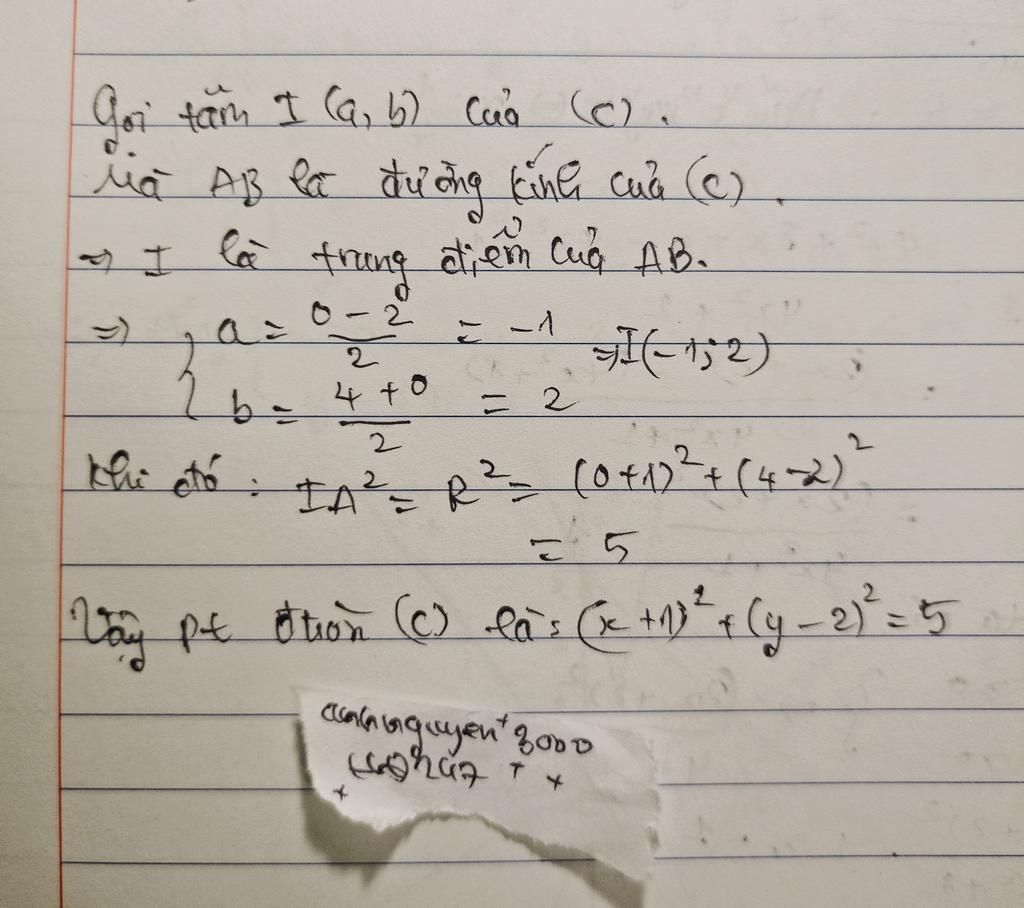 Gọi tâm I (a, b) của (C).
Mà AB là đường kính của (C).
=> I là trung điểm của AB.
=> { a = \frac{0 - 2}{2} = -1
b = \frac{4 + 0}{2} = 2 => I(-1; 2)
Khi đó : IA² = R² = (0+1)² + (4-2)²
= 5
Vậy pt đtròn (C) là: (x+1)² + (y-2)² = 5
3000